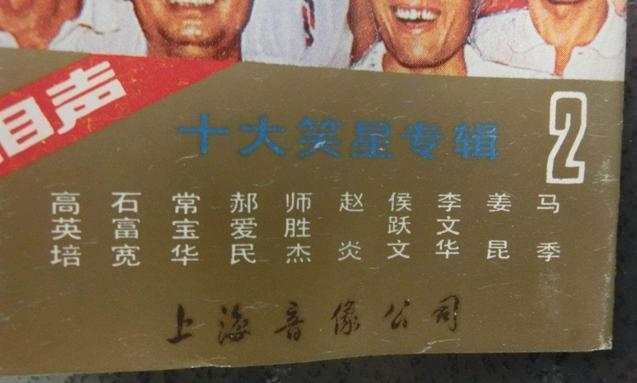 相声
十大笑星专辑
2
马季
姜昆
李文华
侯跃文
赵炎
师胜杰
郝爱民
常宝华
石富宽
高英培
上海音像公司